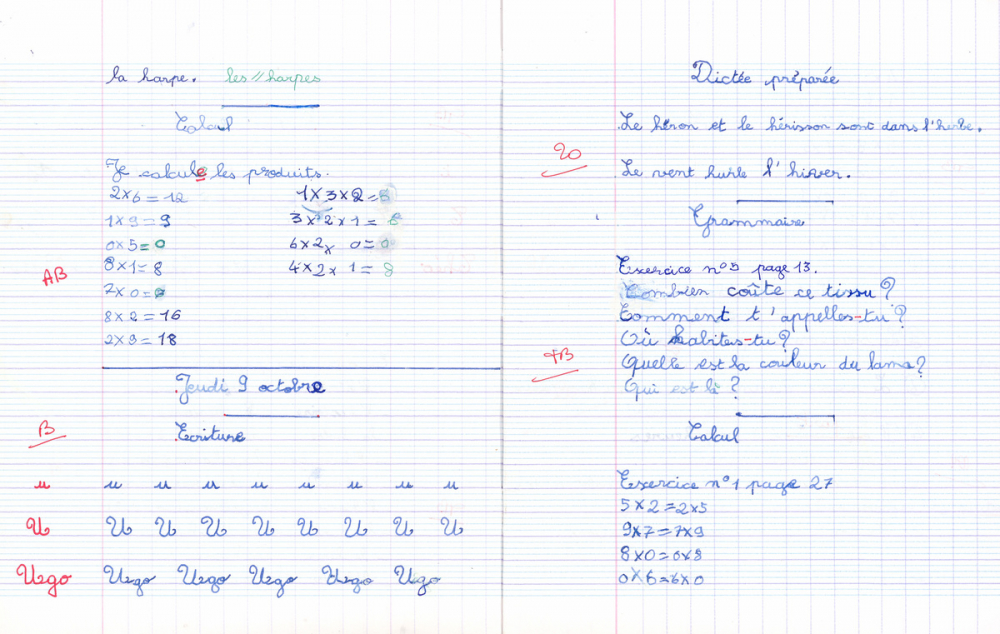 la harpe. les // harpes
Calcul
Je calcule les produits.
2x6=12 1x3x2=6
1x9=9 3x2x1=6
0x5=0 6x2x0=0
8x1=8 4x2x1=8
7x0=0
8x2=16
2x9=18
AB
Jeudi 9 octobre
B
Ecriture
u u u u u u u u u
U U U U U U U U U
Ugo Ugo Ugo Ugo Ugo Ugo
Dictée préparée
Le héron et le hérisson sont dans l'herbe.
20
Le vent hurle l'hiver.
Grammaire
Exercice n°3 page 13.
Combien coûte ce tissu ?
Comment t'appelles-tu ?
Où habites-tu ?
TB
Quelle est la couleur du lama ?
Qui est là ?
Calcul
Exercice n°1 page 27
5x2=2x5
9x7=7x9
8x0=0x8
0x6=6x0